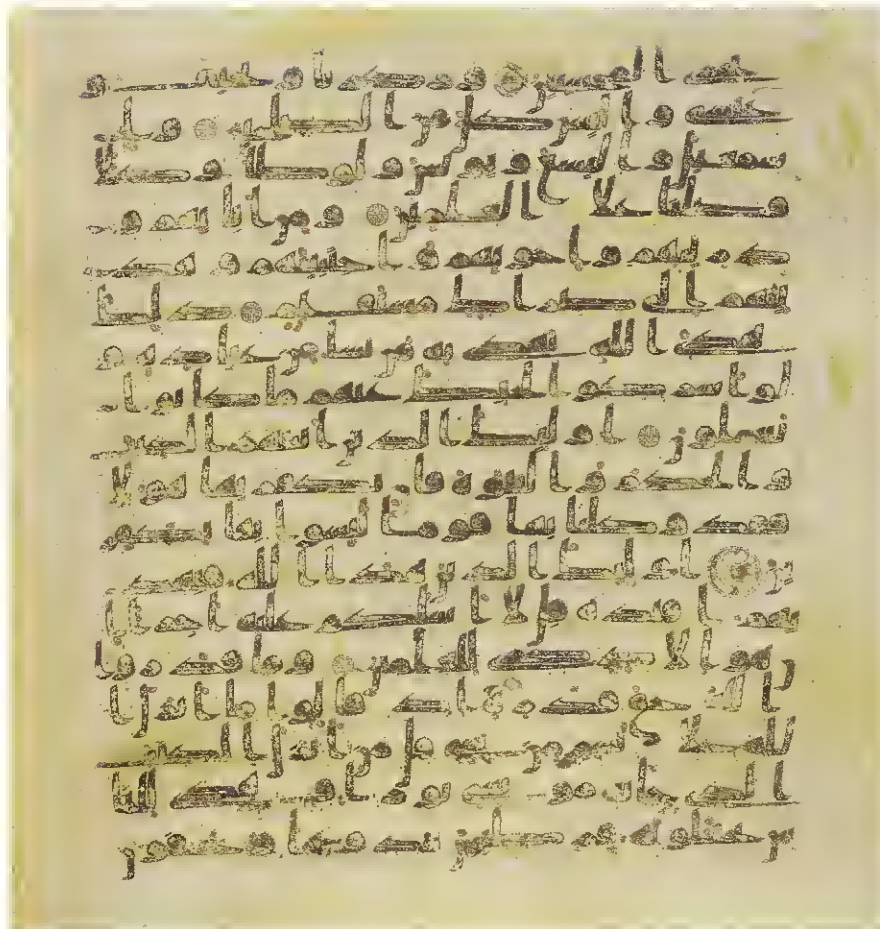 نجزى المحسنين وزكريا ويحيى و
عيسى والياس كل من الصلحين وا
سمعيل واليسع ويونس ولوطا وكلا
فضلنا على العلمين ومن ابائهم وذ
ريتهم واخونهم واجتبينهم وهد
ينهم الى صرط مستقيم ذلك
هدى الله يهدى به من يشا من عباده و
لو اشركوا لحبط عنهم ما كانوا
يعملون اولئك الذين اتينهم الكتب
والحكم والنبوة فان يكفر بها هولا
فقد وكلنا بها قوما ليسوا بها بكفر
ين اولئك الذين هدى الله فبهد
يهم اقتده قل لا اسلكم عليه اجرا ا
ن هو الا ذكرى للعلمين وما قدروا
الله حق قدره اذ قالوا ما انزل ا
لله على بشر من شى قل من انزل الكتب
الذى جا به موسى نورا وهدى للنا
س تجعلونه قرطيس تبدونها وتخفون